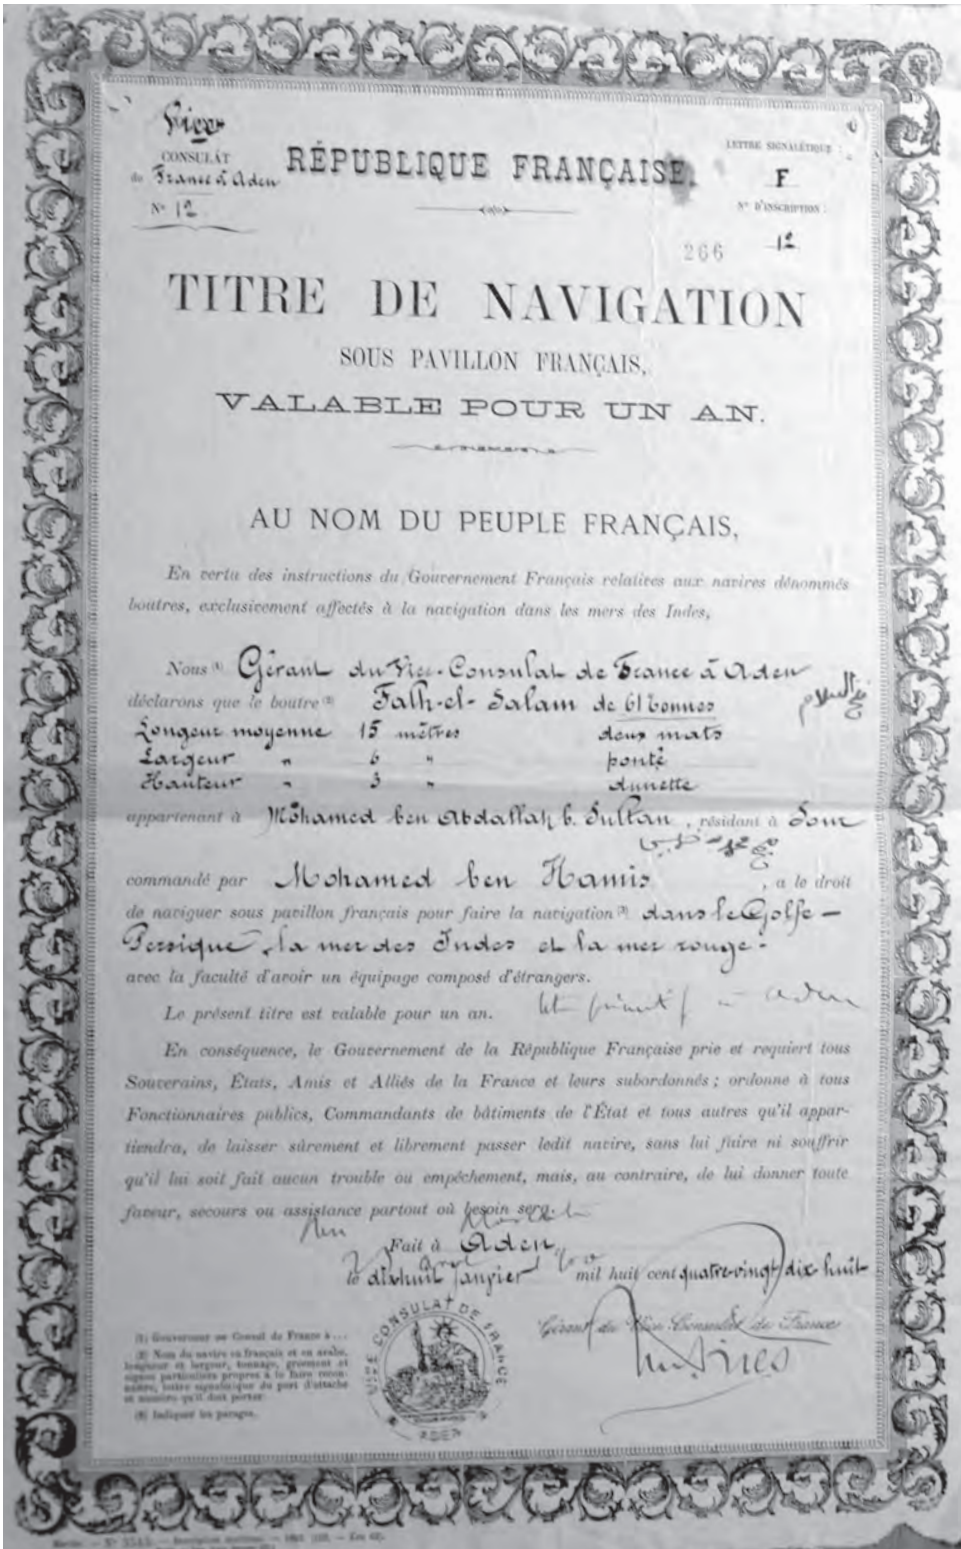 Vice
CONSULAT
de France à Aden
N° 12
RÉPUBLIQUE FRANÇAISE.
LETTRE SIGNALÉTIQUE :
F
N° D'INSCRIPTION :
12
266
TITRE DE NAVIGATION
SOUS PAVILLON FRANÇAIS,
VALABLE POUR UN AN.
AU NOM DU PEUPLE FRANÇAIS,
En vertu des instructions du Gouvernement Français relatives aux navires dénommés
boutres, exclusivement affectés à la navigation dans les mers des Indes,
Nous (1) Gérant du Vice-Consulat de France à Aden
déclarons que le boutre (2) Fath-el-Salam de 61 tonnes
فتح السلام
Longeur moyenne 15 mètres deux mats
Largeur " 6 " ponté
Hauteur " 3 " dunette
appartenant à Mohamed ben Abdallah b. Sultan, résidant à Sour
commandé par Mohamed ben Hamis, a le droit
de naviguer sous pavillon français pour faire la navigation (3) dans le Golfe-
Persique, la mer des Indes et la mer rouge.
avec la faculté d'avoir un équipage composé d'étrangers.
Le présent titre est valable pour un an.
à Aden
En conséquence, le Gouvernement de la République Française prie et requiert tous
Souverains, États, Amis et Alliés de la France et leurs subordonnés ; ordonne à tous
Fonctionnaires publics, Commandants de bâtiments de l'État et tous autres qu'il appar-
tiendra, de laisser sûrement et librement passer ledit navire, sans lui faire ni souffrir
qu'il lui soit fait aucun trouble ou empêchement, mais, au contraire, de lui donner toute
faveur, secours ou assistance partout où besoin sera.
Fait à Aden,
le dix huit janvier mil huit cent quatre-vingt dix huit
Gérant du Vice Consulat de France
VICE CONSULAT DE FRANCE
ADEN
(1) Gouverneur ou Consul de France à . . .
(2) Nom du navire en français et en arabe,
longueur et largeur, tonnage, gréement et
signes particuliers propres à le faire recon-
naître, lettre signalétique du port d'attache
et numéro qu'il doit porter.
(3) Indiquer les parages.